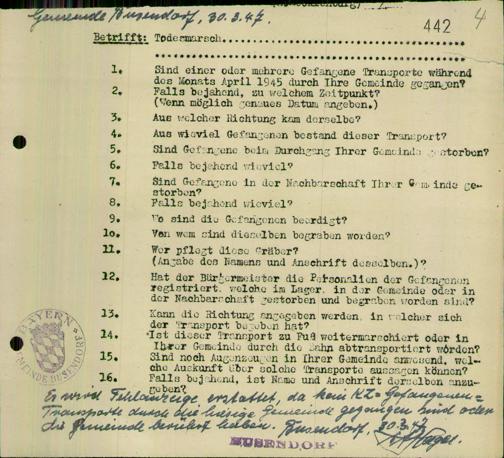 Gemeinde Busendorf, 30.3.47.
442
4
Betrifft: Todermarsch
1. Sind einer oder mehrere Gefangene Transporte während
des Monats April 1945 durch Ihre Gemeinde gegangen?
2. Falls bejahend, zu welchem Zeitpunkt?
(Wenn möglich genaues Datum angeben.)
3. Aus welcher Richtung kam derselbe?
4. Aus wieviel Gefangenen bestand dieser Transport?
5. Sind Gefangene beim Durchgang Ihrer Gemeinde gestorben?
6. Falls bejahend wieviel?
7. Sind Gefangene in der Nachbarschaft Ihrer Gemeinde ge-
storben?
8. Falls bejahend wieviel?
9. Wo sind die Gefangenen beerdigt?
10. Von wem sind dieselben begraben worden?
11. Wer pflegt diese Gräber?
(Angabe des Namens und Anschrift desselben.)?
12. Hat der Bürgermeister die Personalien der Gefangenen
registriert, welche im Lager, in der Gemeinde oder in
der Nachbarschaft gestorben und begraben worden sind?
13. Kann die Richtung angegeben werden, in welcher sich
der Transport begeben hat?
14. Ist dieser Transport zu Fuß weitermarschiert oder in
Ihrer Gemeinde durch die Bahn abtransportiert worden?
15. Sind noch Augenzeugen in Ihrer Gemeinde anwesend, wel-
che Auskunft über solche Transporte aussagen können?
16. Falls bejahend, ist Name und Anschrift derselben anzu-
geben?
Es wird Fehlanzeige erstattet, da kein KZ-Gefangenen-
Transporte durch die hiesige Gemeinde gegangen sind oder
die Gemeinde berührt haben. Busendorf, 30.3.47
BUSENDORF
BAYERN
GEMEINDE BUSENDORF